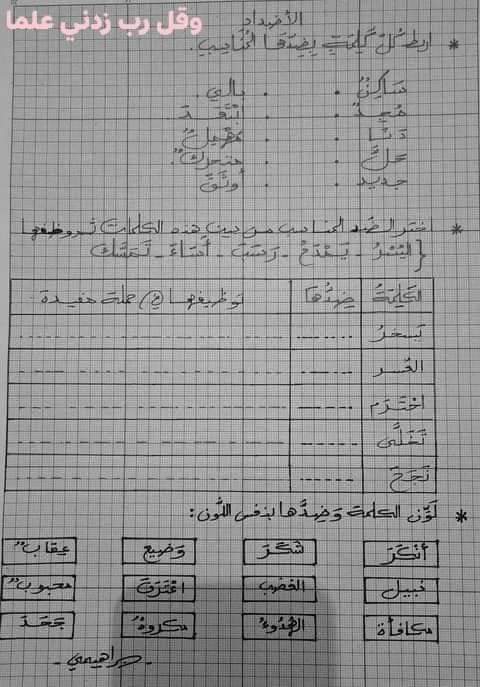 الأضداد
وقل رب زدني علما
* اربط كلّ كلمة بضدّها المناسب.
ساكنٌ • • بالي.
مُجِدٌّ • • ابْتَعَدَ
دَنَا • • مُهْمِلٌ
حلَّ • • متحرّكٌ.
جديد • • أوثَقَ
* اختر الضد المناسب من بين هذه الكلمات ثم وظفها
{ اليُسْرُ - يَمْدَحُ - رَسَبَ - أَسَاءَ - تَمَسَّكَ
الكَلِمَةُ ضِدُّهَا توظيفها في جملة مفيدة
يَسخرُ
العُسر
احْتَرَم
تَخَلَّى
نَجَحَ
* لَوِّن الكلمة وَضِدَّها بنفس اللّون:
أَنْكَرَ شَكَرَ وَضِيع عِقابٌ
نَبِيل الغضب اعْتَرَفَ محبوبٌ
مكافأة الهُدُوءُ مكروهٌ جَحَدَ
- براهيمي -